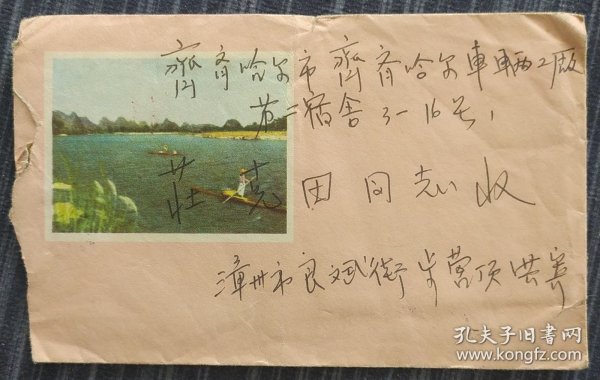 齊齊哈尔市齊齊哈尔車輛工厰
第二宿舍3-16号,
莊堯田同志收
漳州市良斌街步营顶洪寄
孔夫子旧书网
www.kongfz.com